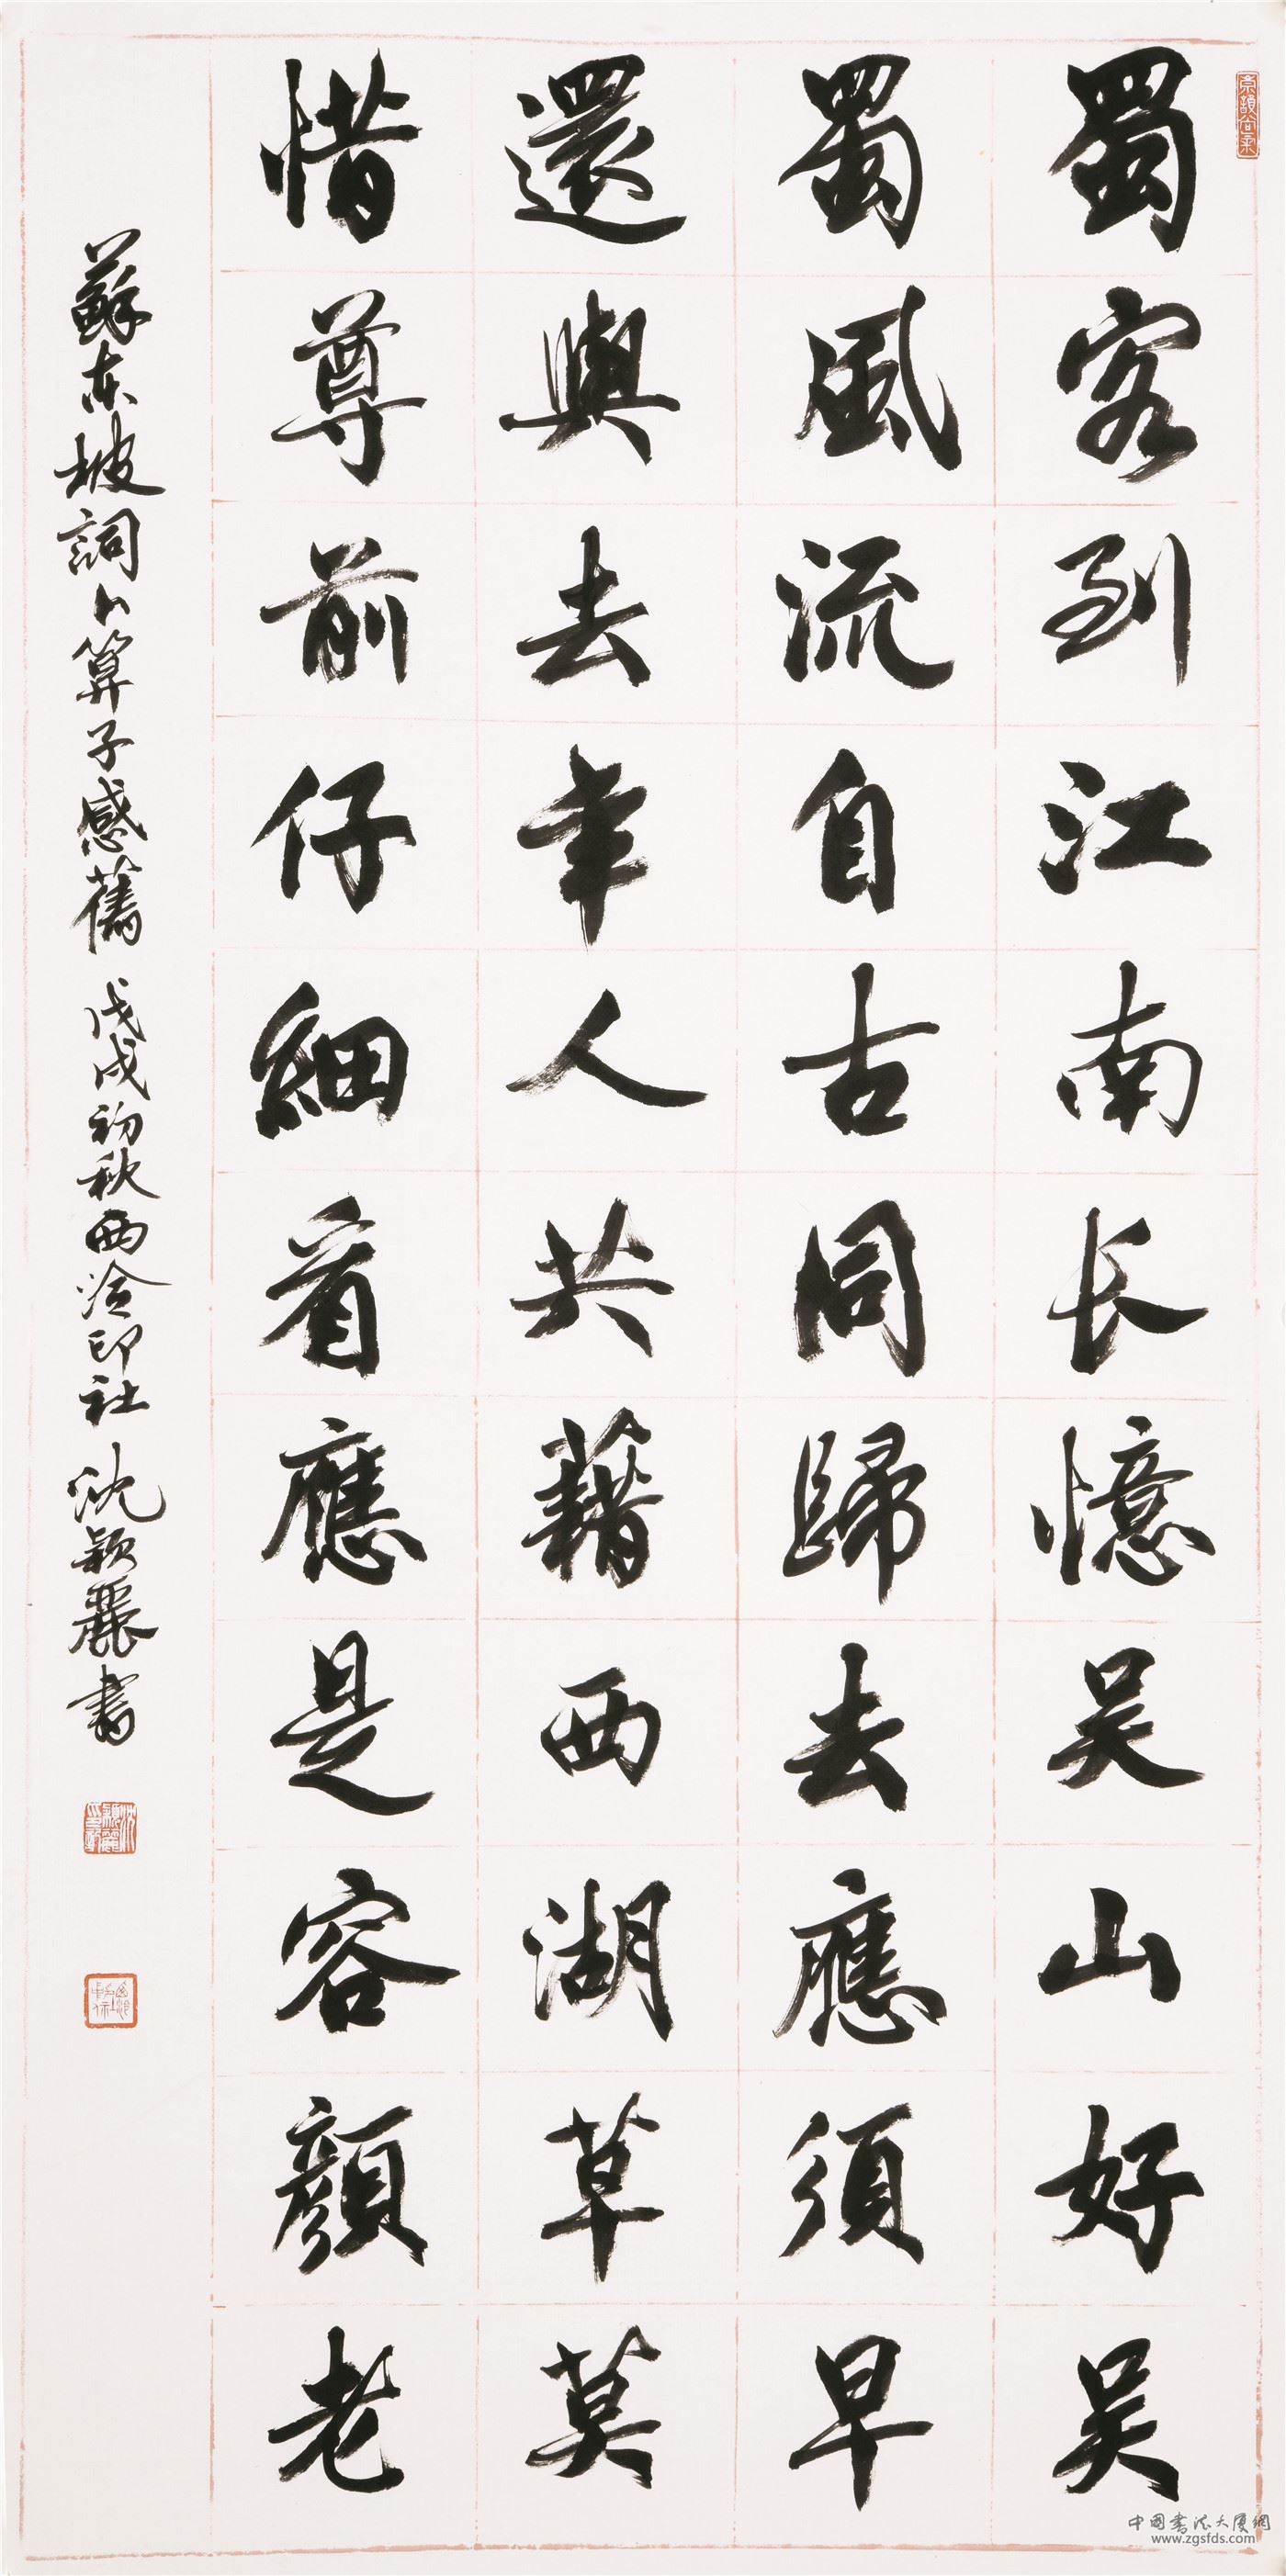 蜀客到江南长憶吴山好吴
蜀風流自古同歸去應須早
還與去年人共藉西湖草莫
惜尊前仔細看應是容顏老
蘇东坡詞卜算子感舊 戊戌初秋西泠印社沈颖麗書
中國書法大厦網
www.zgsfds.com